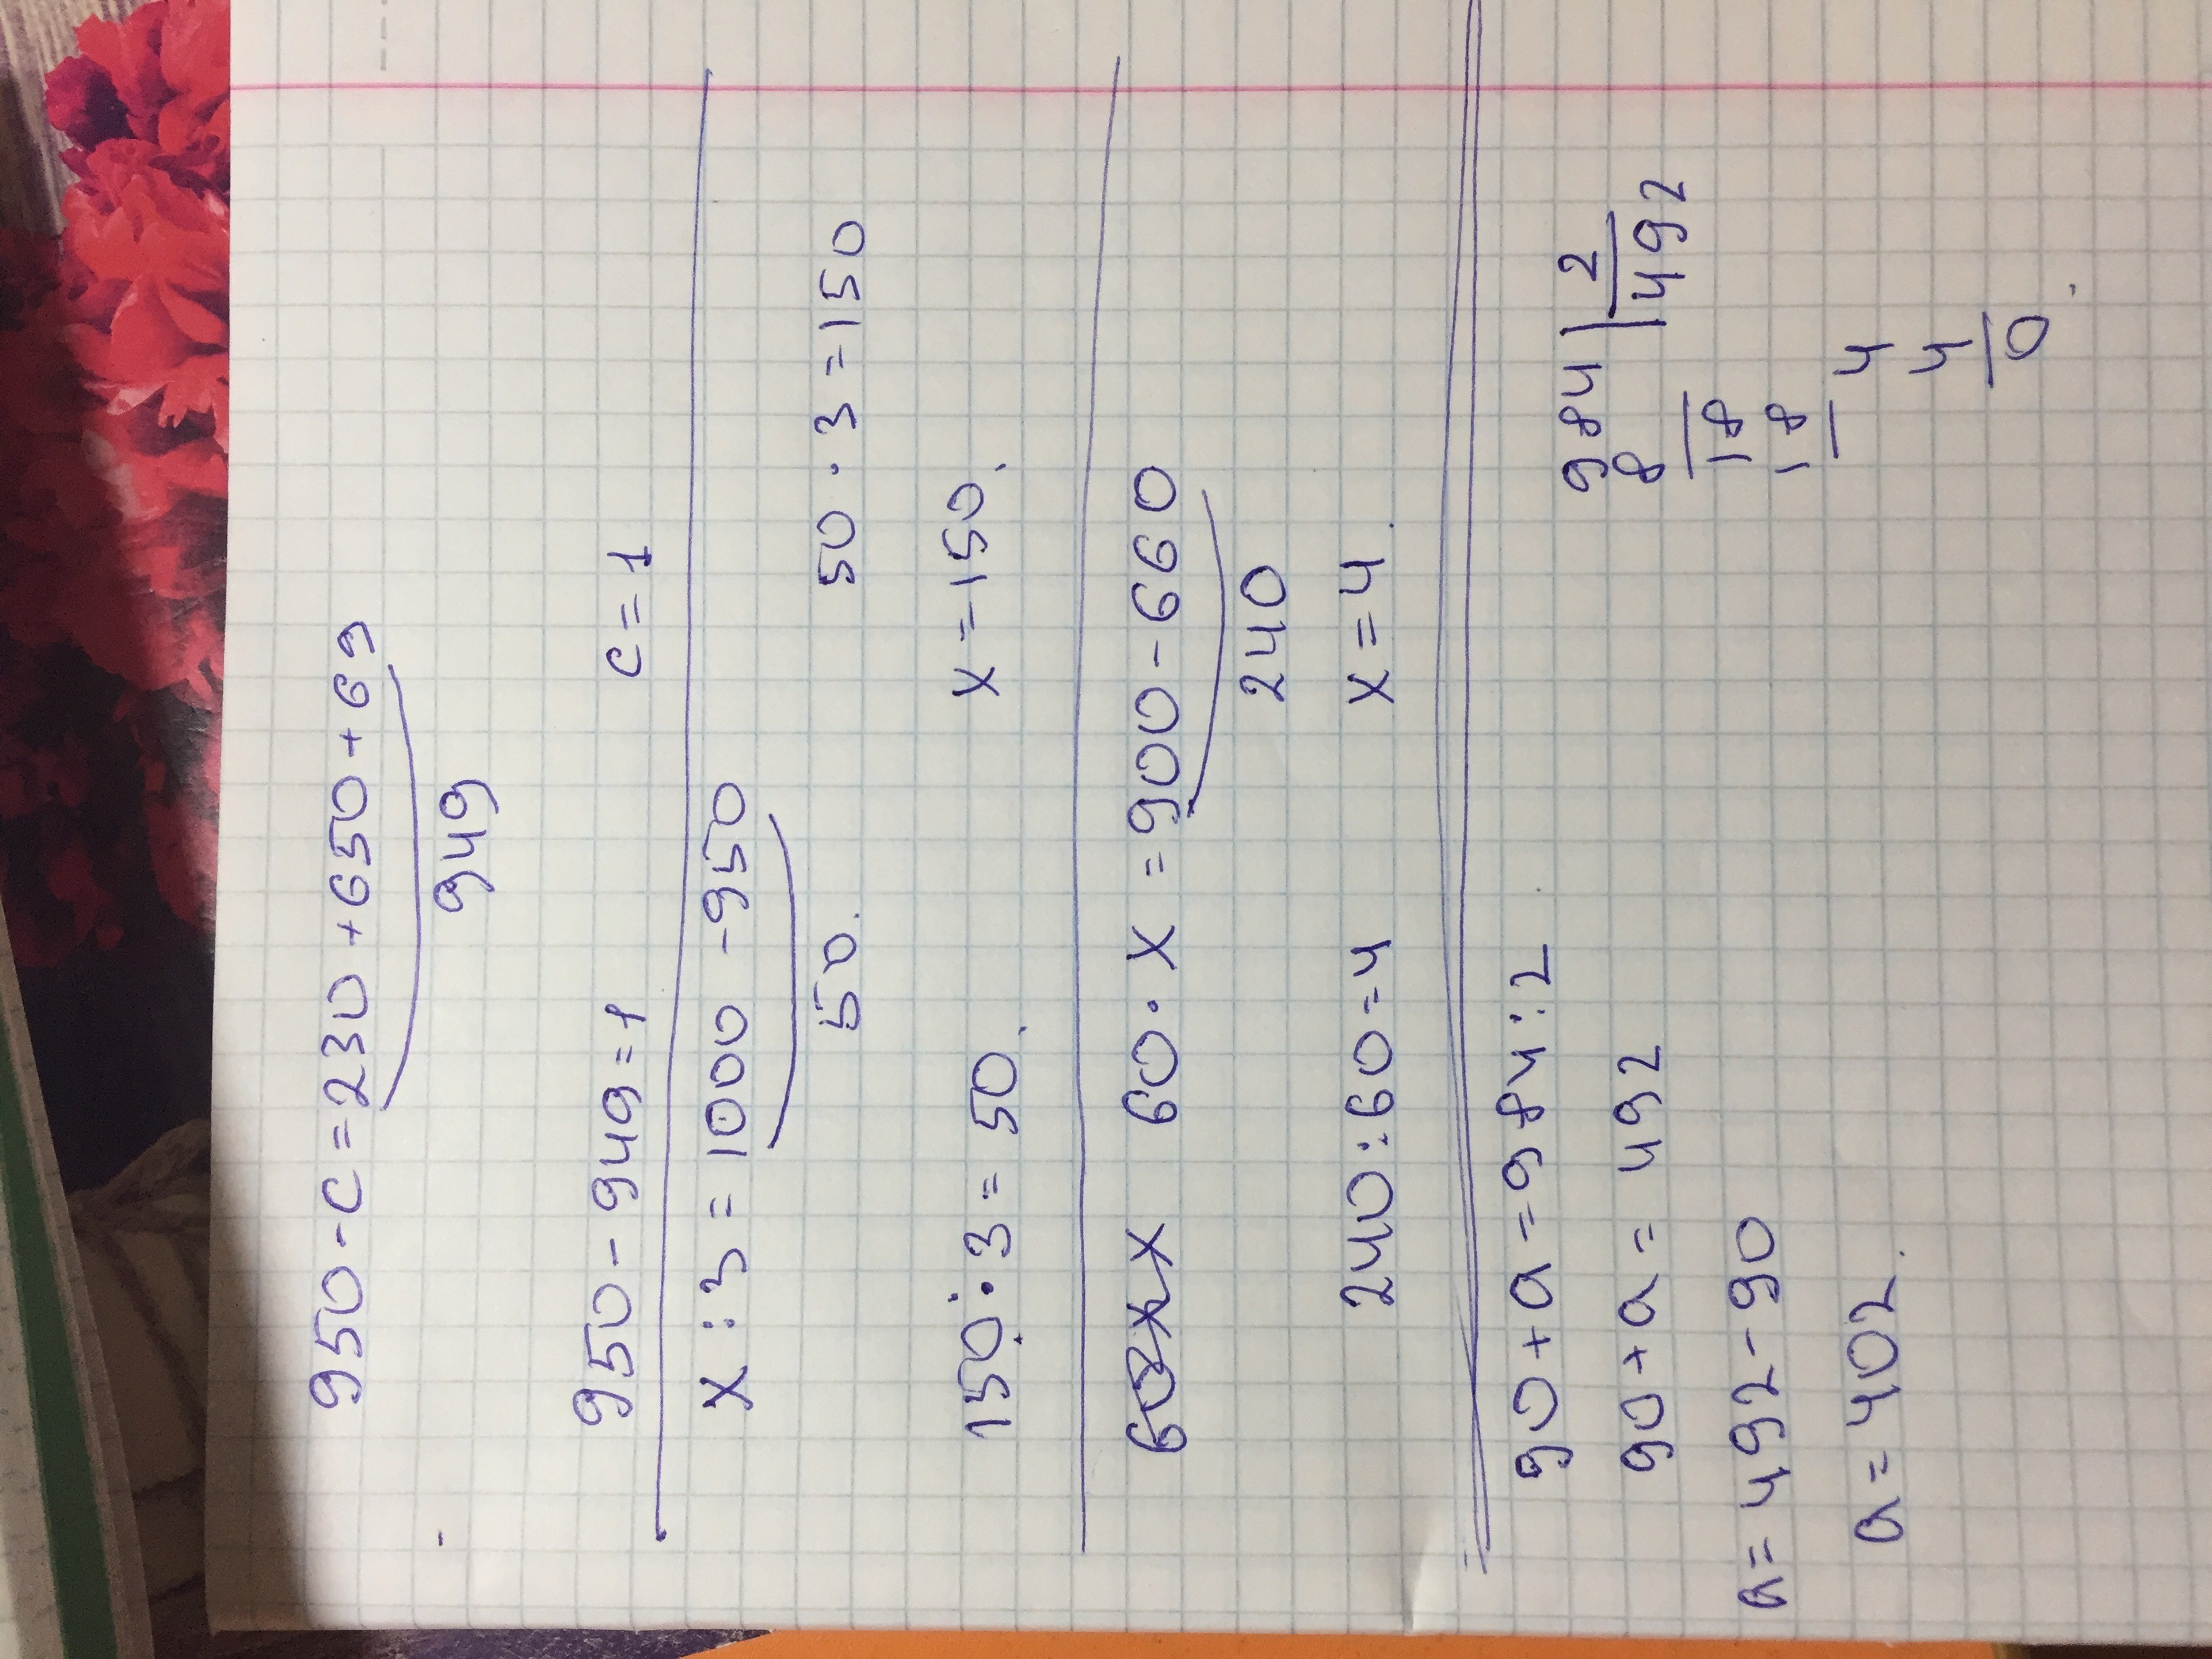 950-c=230+650+69
949
950-949=1 c=1
x:3=1000-950
50. 50·3=150
150:3=50. x=150.
60·x=900-660
240
240:60=4 x=4.
90+a=984:2
984 2
90+a=492
8 492
18
a=492-90
18
4
a=402.
4
0.